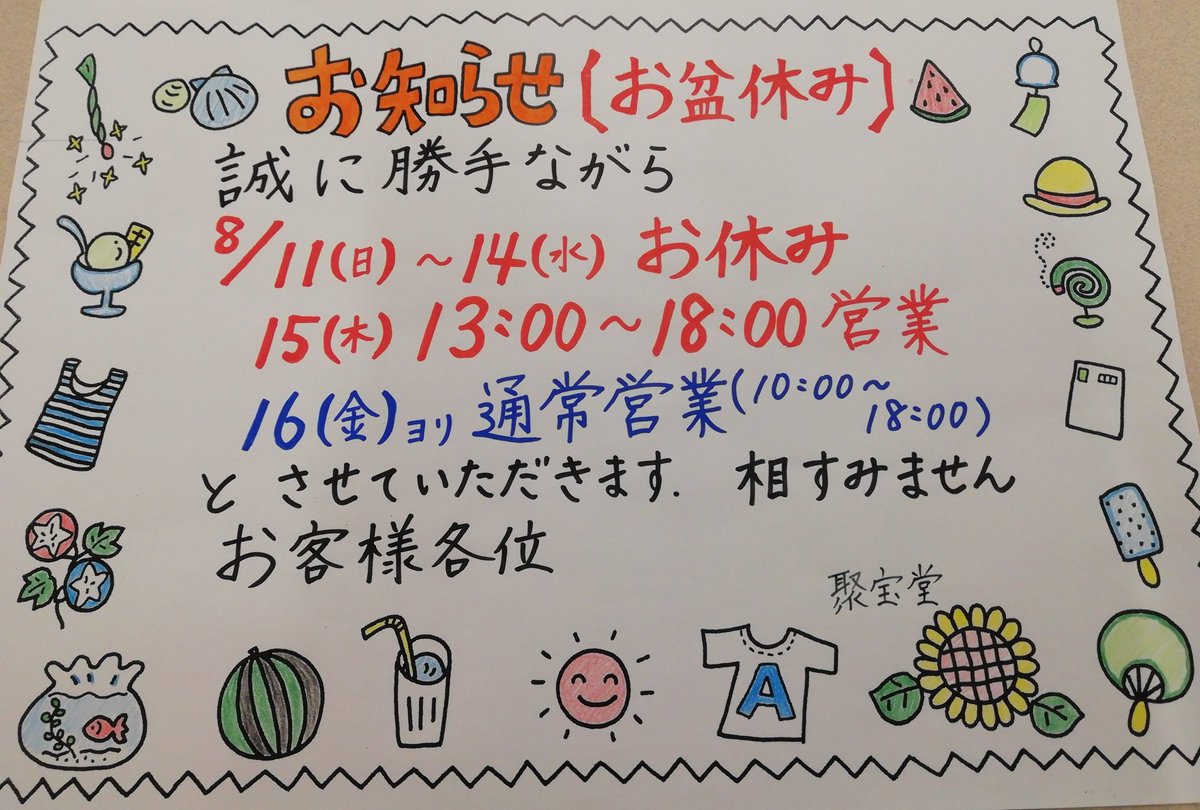 お知らせ〔お盆休み〕
誠に勝手ながら
8/11(日)～14(水) お休み
15(木) 13:00～18:00 営業
16(金)ヨリ 通常営業(10:00～
18:00)
と させていただきます. 相すみません
お客様各位
聚宝堂
A